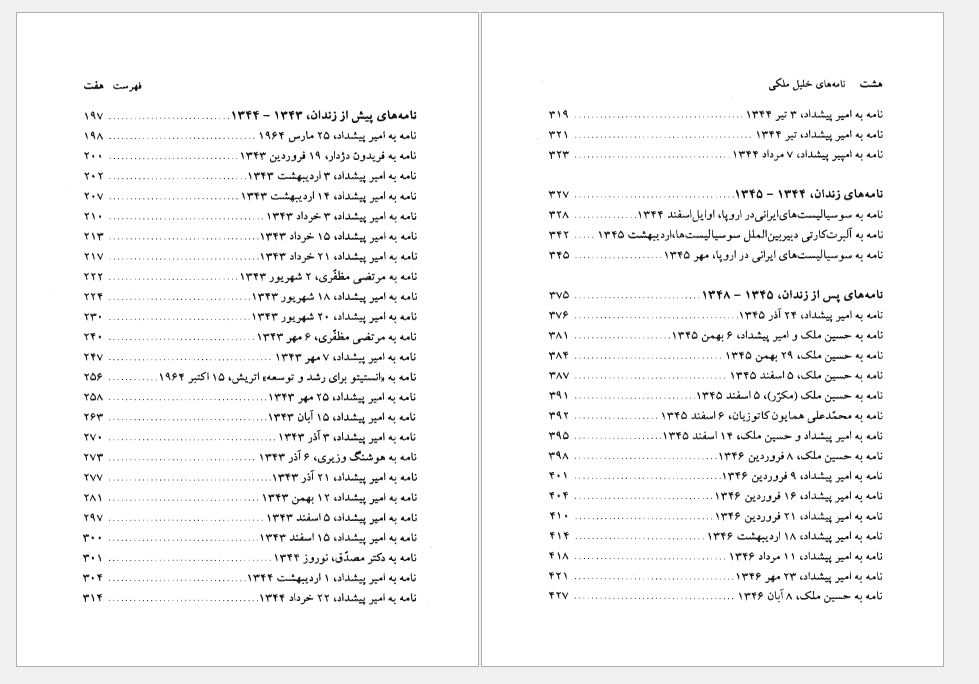 فهرست هفت
نامه‌های پیش از زندان، ۱۳۴۳ – ۱۳۴۴ ........ ۱۹۷
نامه به امیر پیشداد، ۲۵ مارس ۱۹۶۴ ........ ۱۹۸
نامه به فریدون دژدار، ۱۹ فروردین ۱۳۴۳ ........ ۲۰۰
نامه به امیر پیشداد، ۳ اردیبهشت ۱۳۴۳ ........ ۲۰۲
نامه به امیر پیشداد، ۱۴ اردیبهشت ۱۳۴۳ ........ ۲۰۷
نامه به امیر پیشداد، ۳ خرداد ۱۳۴۳ ........ ۲۱۰
نامه به امیر پیشداد، ۱۵ خرداد ۱۳۴۳ ........ ۲۱۳
نامه به امیر پیشداد، ۲۱ خرداد ۱۳۴۳ ........ ۲۱۷
نامه به مرتضی مظفّری، ۲ شهریور ۱۳۴۳ ........ ۲۲۲
نامه به امیر پیشداد، ۱۸ شهریور ۱۳۴۳ ........ ۲۲۴
نامه به امیر پیشداد، ۲۰ شهریور ۱۳۴۳ ........ ۲۳۰
نامه به مرتضی مظفّری، ۶ مهر ۱۳۴۳ ........ ۲۴۰
نامه به امیر پیشداد، ۷ مهر ۱۳۴۳ ........ ۲۴۷
نامه به «انستیتو برای رشد و توسعه» اتریش، ۱۵ اکتبر ۱۹۶۴ ........ ۲۵۶
نامه به امیر پیشداد، ۲۵ مهر ۱۳۴۳ ........ ۲۵۸
نامه به امیر پیشداد، ۱۵ آبان ۱۳۴۳ ........ ۲۶۳
نامه به امیر پیشداد، ۳ آذر ۱۳۴۳ ........ ۲۷۰
نامه به هوشنگ وزیری، ۶ آذر ۱۳۴۳ ........ ۲۷۳
نامه به امیر پیشداد، ۲۱ آذر ۱۳۴۳ ........ ۲۷۷
نامه به امیر پیشداد، ۱۲ بهمن ۱۳۴۳ ........ ۲۸۱
نامه به امیر پیشداد، ۵ اسفند ۱۳۴۳ ........ ۲۹۷
نامه به امیر پیشداد، ۱۵ اسفند ۱۳۴۳ ........ ۳۰۰
نامه به دکتر مصدّق، نوروز ۱۳۴۴ ........ ۳۰۱
نامه به امیر پیشداد، ۱ اردیبهشت ۱۳۴۴ ........ ۳۰۴
نامه به امیر پیشداد، ۲۲ خرداد ۱۳۴۴ ........ ۳۱۴
هشت نامه‌های خلیل ملکی
نامه به امیر پیشداد، ۳ تیر ۱۳۴۴ ........ ۳۱۹
نامه به امیر پیشداد، تیر ۱۳۴۴ ........ ۳۲۱
نامه به امپیر پیشداد، ۷ مرداد ۱۳۴۴ ........ ۳۲۳
نامه‌های زندان، ۱۳۴۴ – ۱۳۴۵ ........ ۳۲۷
نامه به سوسیالیست‌های‌ایرانی‌در اروپا، اوایل‌اسفند ۱۳۴۴ ........ ۳۲۸
نامه به آلبرت‌کارتی دبیربین‌الملل سوسیالیست‌ها،اردیبهشت ۱۳۴۵ ..... ۳۴۲
نامه به سوسیالیست‌های ایرانی در اروپا، مهر ۱۳۴۵ ........ ۳۴۵
نامه‌های پس از زندان، ۱۳۴۵ – ۱۳۴۸ ........ ۳۷۵
نامه به امیر پیشداد، ۲۴ آذر ۱۳۴۵ ........ ۳۷۶
نامه به حسین ملک و امیر پیشداد، ۶ بهمن ۱۳۴۵ ........ ۳۸۱
نامه به حسین ملک، ۲۹ بهمن ۱۳۴۵ ........ ۳۸۴
نامه به حسین ملک، ۵ اسفند ۱۳۴۵ ........ ۳۸۷
نامه به حسین ملک (مکرّر)، ۵ اسفند ۱۳۴۵ ........ ۳۹۱
نامه به محمّدعلی همایون کاتوزیان، ۶ اسفند ۱۳۴۵ ........ ۳۹۲
نامه به امیر پیشداد و حسین ملک، ۱۴ اسفند ۱۳۴۵ ........ ۳۹۵
نامه به حسین ملک، ۸ فروردین ۱۳۴۶ ........ ۳۹۸
نامه به امیر پیشداد، ۹ فروردین ۱۳۴۶ ........ ۴۰۱
نامه به امیر پیشداد، ۱۶ فروردین ۱۳۴۶ ........ ۴۰۴
نامه به امیر پیشداد، ۲۱ فروردین ۱۳۴۶ ........ ۴۱۰
نامه به امیر پیشداد، ۱۸ اردیبهشت ۱۳۴۶ ........ ۴۱۴
نامه به امیر پیشداد، ۱۱ مرداد ۱۳۴۶ ........ ۴۱۸
نامه به امیر پیشداد، ۲۳ مهر ۱۳۴۶ ........ ۴۲۱
نامه به حسین ملک، ۸ آبان ۱۳۴۶ ........ ۴۲۷